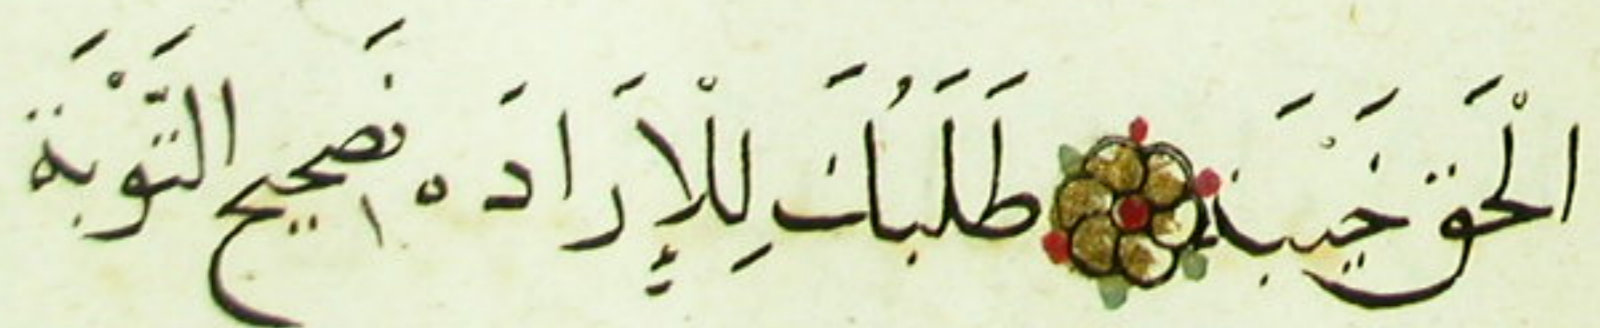 الْحَقِّ خَيْبَة طَلَبُكَ لِلْإِرَادَة تَصَحِيح التَّوْبَة